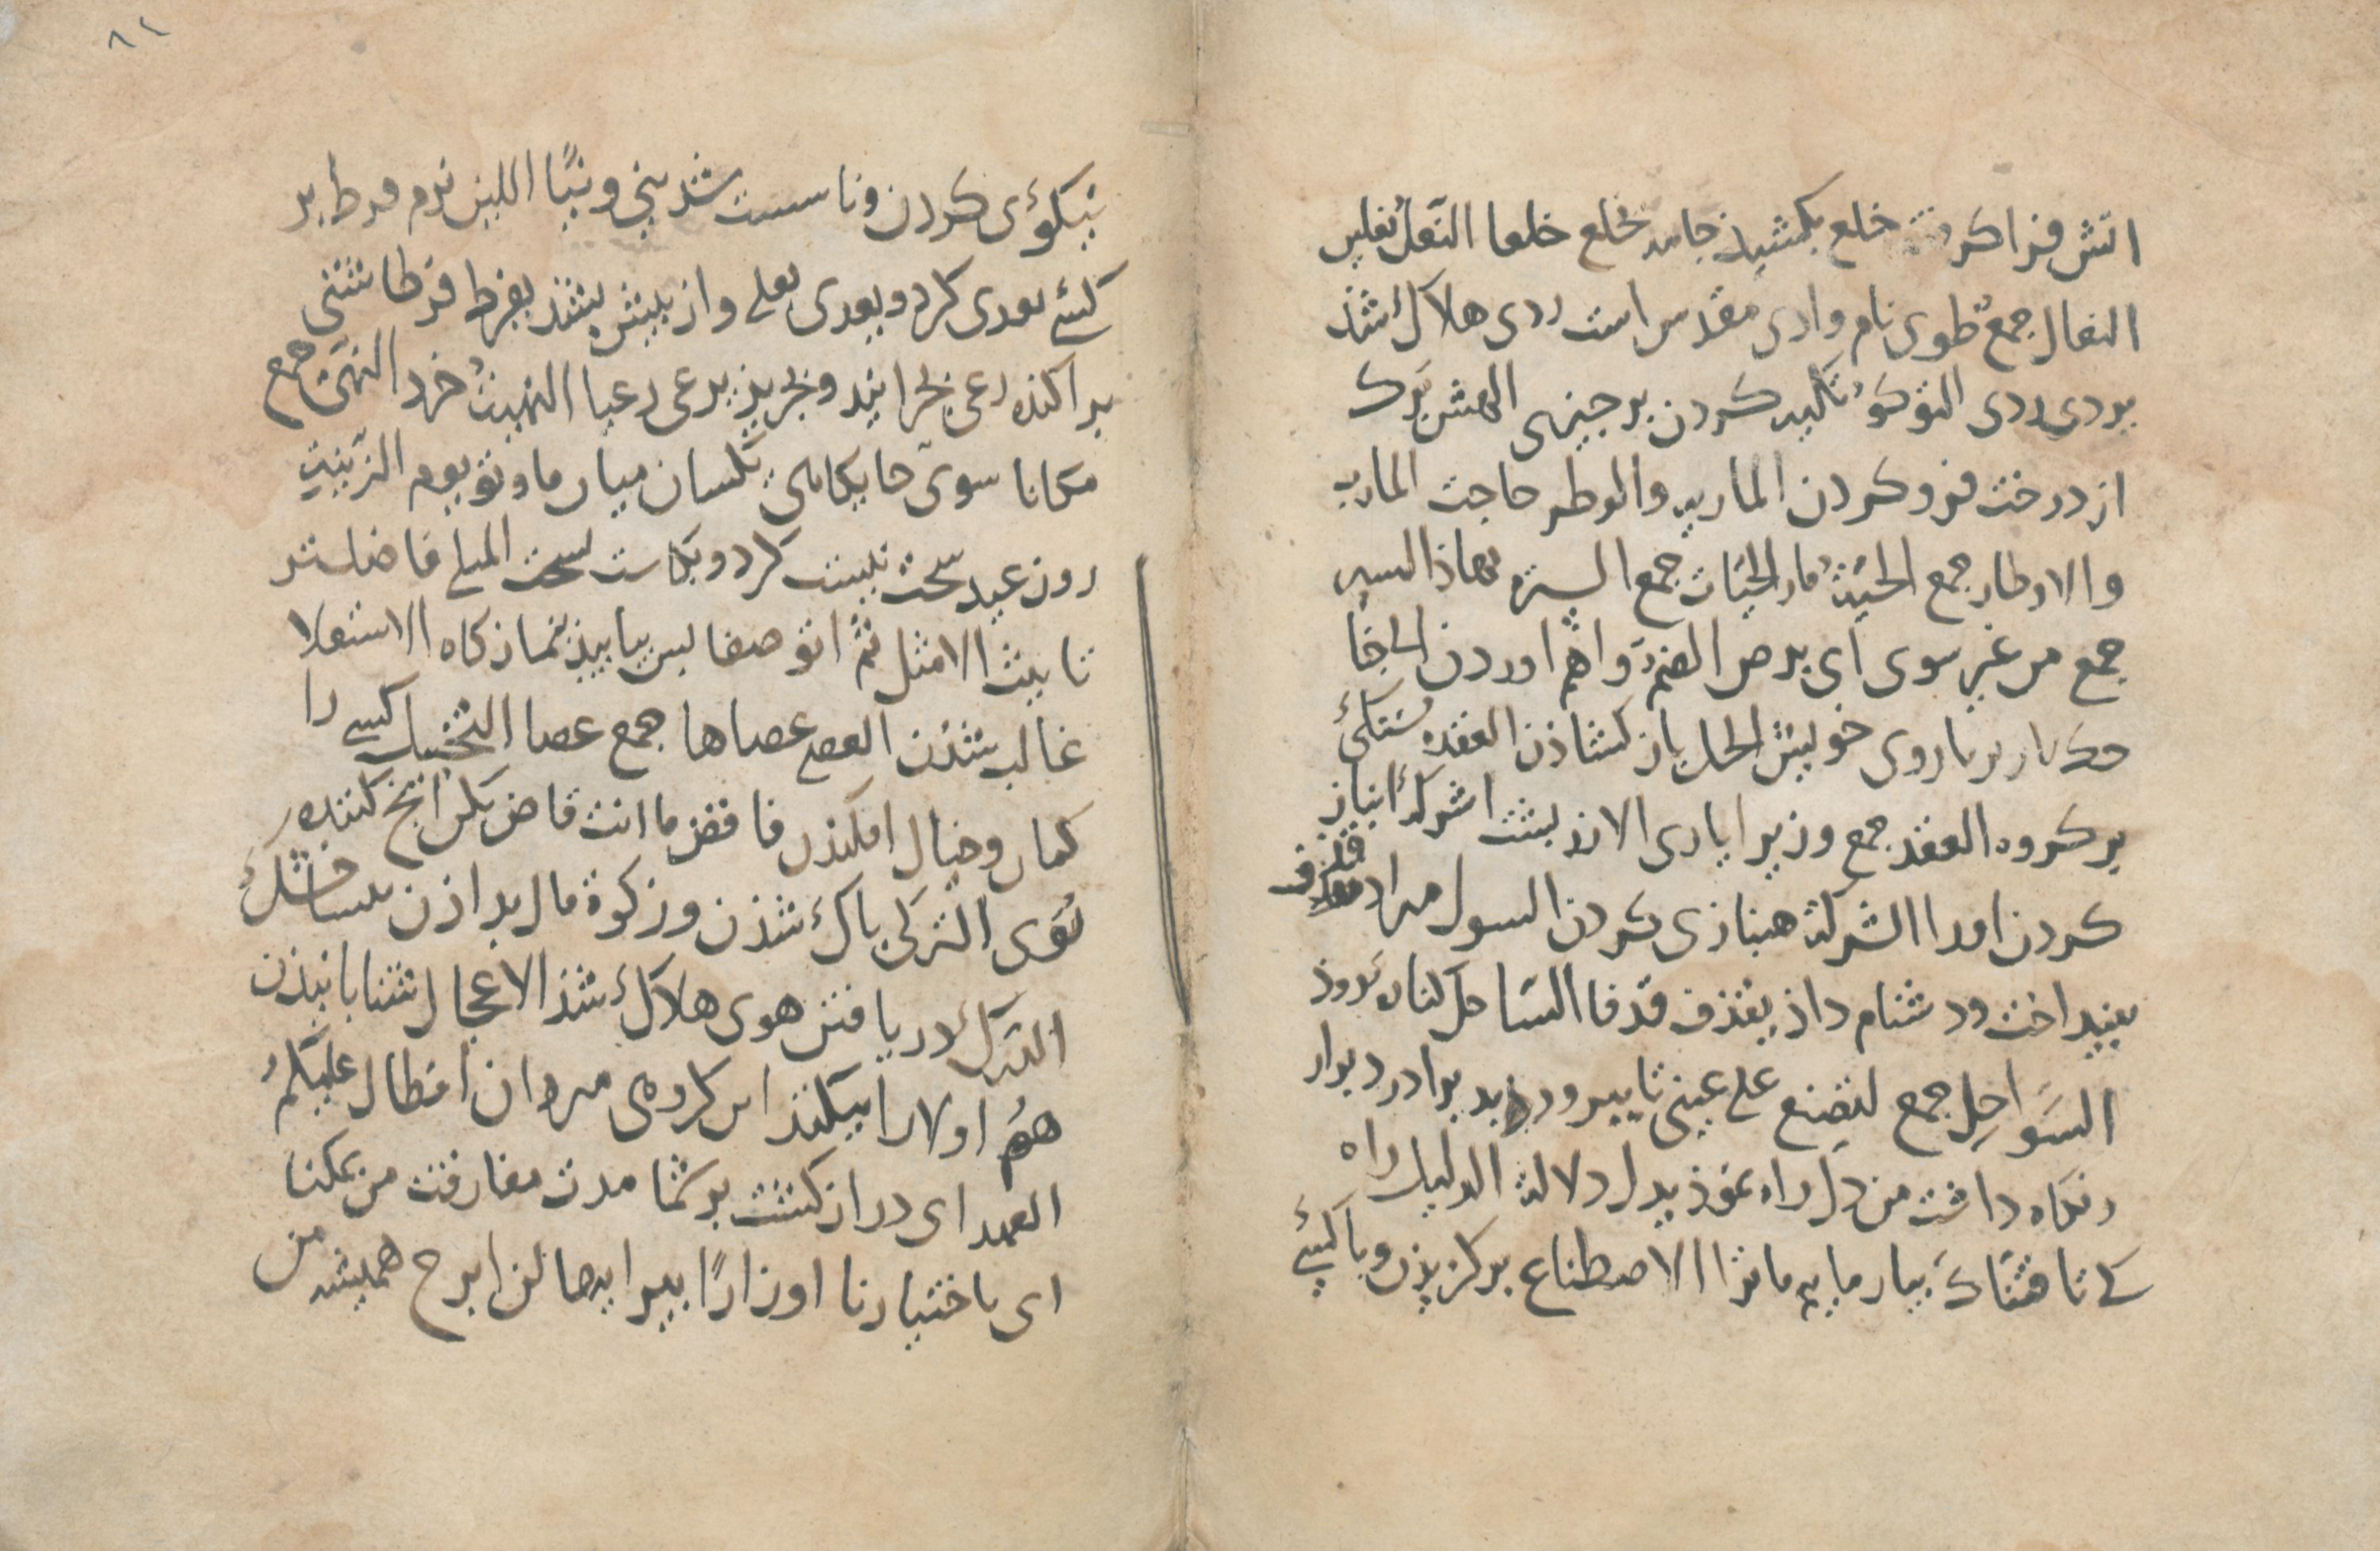 اتش فرا کرفت خلع بکشیذ جامه یخلع خلعا النعل نعلین
النعال جمع طوی نام وادی مقدس است ردی هلاک شذ
یردی ردی التوکؤ تکیه کردن بر چیزی الهش برک
از درخت فرو کردن الماربه والوطر حاجت المارب
والاوطار جمع الحیة مار الحیات جمع السیرة نهاذ السیر
جمع من غیر سوی ای برص الضم وا هم اوردن
باروی خویش الحل باز کشاذن العقده بستکئ
بر کروه العقد جمع وزیرا یاری الازر بشت اشرک انباز
کردن اورا الشرکة هنبازی کردن السول مراد قذف
بینداخت ودشنام داذ یقذف قذفا الساحل کناره روذ
السواحل جمع لتصنع علی عینی تا ببرورند برا در دیدار
ونکاه داشت من دل راه نموذ یدل دلالة الدلیل راه
تا فتناک بیازماییم ما ترا الاصطناع برکزیذن وبا کسی
۸۲
نیکوئی کردن ونا سست شذ ینی ونیا اللین نرم فرط بر
کسی تعدی کرد وبعدی بعلی واز بیش بشذ یفرط فرطا شتی
براکنده رعی بچرانید وبچرید یرعی رعیا النهیة خرد النهی جمع
مکانا سوی جایکاهی یکسان میان ما وتو یوم الزینة
روز عید سحت نیست کرد وبکاست یسحت المثلی فاضلتر
تانیث الامثل ثم ائتو صفا بس بیایید بنماز کاه الاستعلا
غالب شذن العصی عصاها جمع عصا التخییل کسی را
کمان وخیال افکندن فاقض ما انت قاض بکن انچ کننده
توی التزکی باک شذن وزکوة مال بداذن یبسا خشک
الدرک دریافتن هوی هلاک شذ الاعجال شتابانیذن
هم اولا را بیکند این کروهی مردمان افطال علیکم
العهد ای دراز کشت بر شما مدت مفارقت من بملکنا
ای باختیارنا اوزارا بیرایها لن ابرح همیشه من